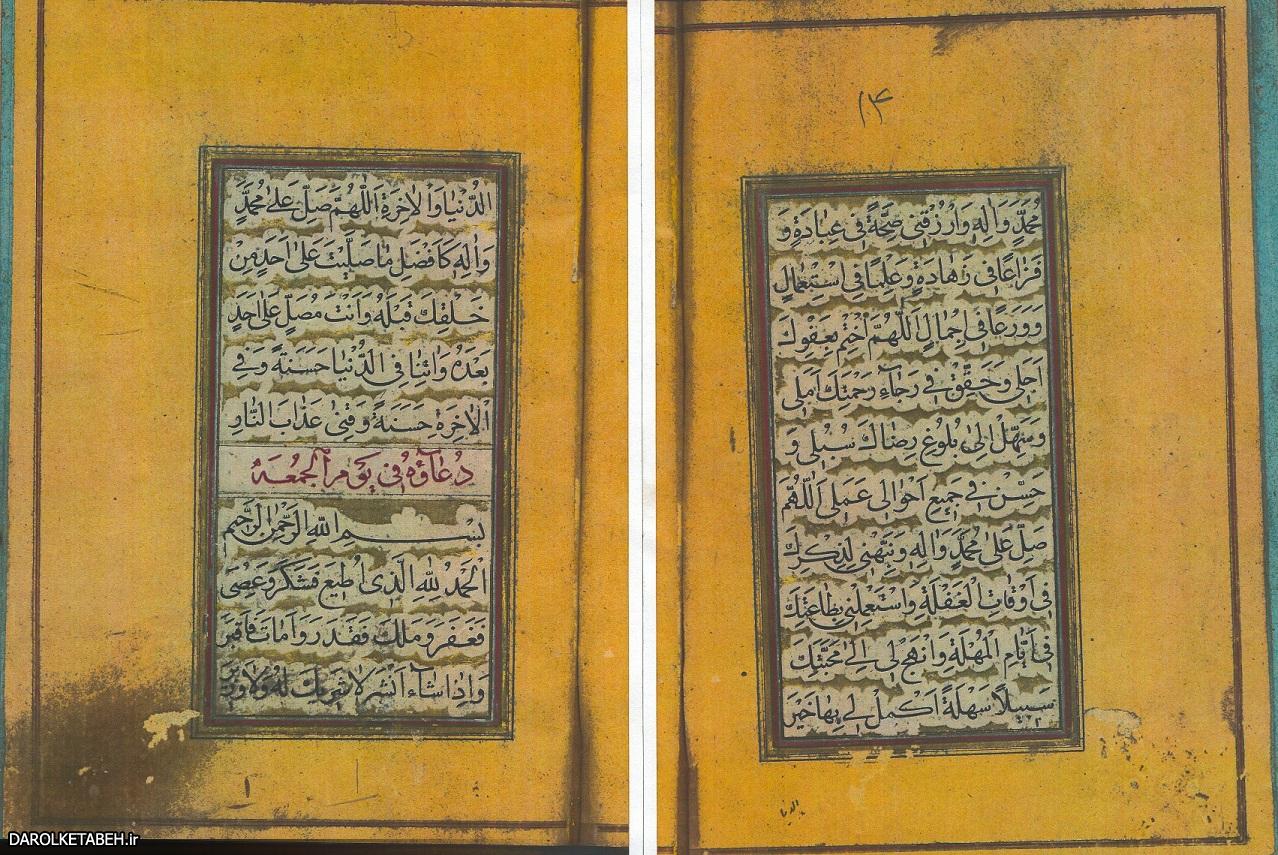 ۱۴
مُحَمَّدٍ وَاٰلِهِ وَارْزُقْنِي صِحَّةً فِي عِبَادَةٍ وَ
فَرَاغًا فِي زَهَادَةٍ وَعِلْمًا فِي اسْتِعْمَالٍ
وَوَرَعًا فِي اِجْمَالٍ اَللّٰهُمَّ اخْتِمْ بِعَفْوِكَ
اَجَلِي وَحَقِّقْ فِي رَجَاءِ رَحْمَتِكَ اَمَلِي
وَسَهِّلْ اِلٰى بُلُوغِ رِضَاكَ سُبُلِي وَ
حَسِّنْ فِي جَمِيعِ اَحْوَالِي عَمَلِي اَللّٰهُمَّ
صَلِّ عَلٰى مُحَمَّدٍ وَاٰلِهِ وَنَبِّهْنِي لِذِكْرِكَ
فِي اَوْقَاتِ الْغَفْلَةِ وَاسْتَعْمِلْنِي بِطَاعَتِكَ
فِي اَيَّامِ الْمُهْلَةِ وَانْهَجْ لِي اِلٰى مَحَبَّتِكَ
سَبِيلًا سَهْلَةً اَكْمِلْ لِي بِهَا خَيْرَ
الدنيا
الدُّنْيَا وَالْاٰخِرَةِ اَللّٰهُمَّ صَلِّ عَلٰى مُحَمَّدٍ
وَاٰلِهِ كَاَفْضَلِ مَا صَلَّيْتَ عَلٰى اَحَدٍ مِنْ
خَلْقِكَ قَبْلَهُ وَاَنْتَ مُصَلٍّ عَلٰى اَحَدٍ
بَعْدَهُ وَاٰتِنَا فِي الدُّنْيَا حَسَنَةً وَفِي
الْاٰخِرَةِ حَسَنَةً وَقِنِي عَذَابَ النَّارِ
دُعَاؤُهُ فِي يَوْمِ الْجُمُعَةِ
بِسْمِ اللّٰهِ الرَّحْمٰنِ الرَّحِيمِ
اَلْحَمْدُ لِلّٰهِ الَّذِي اُطِيعَ فَشَكَرَ وَعُصِيَ
فَغَفَرَ وَمَلَكَ فَقَدَرَ وَاَمَاتَ فَاَقْبَرَ
وَاِذَا شَاءَ اَنْشَرَ لَا شَرِيكَ لَهُ وَلَا وَزِيرَ
DAROLKETABEH.ir